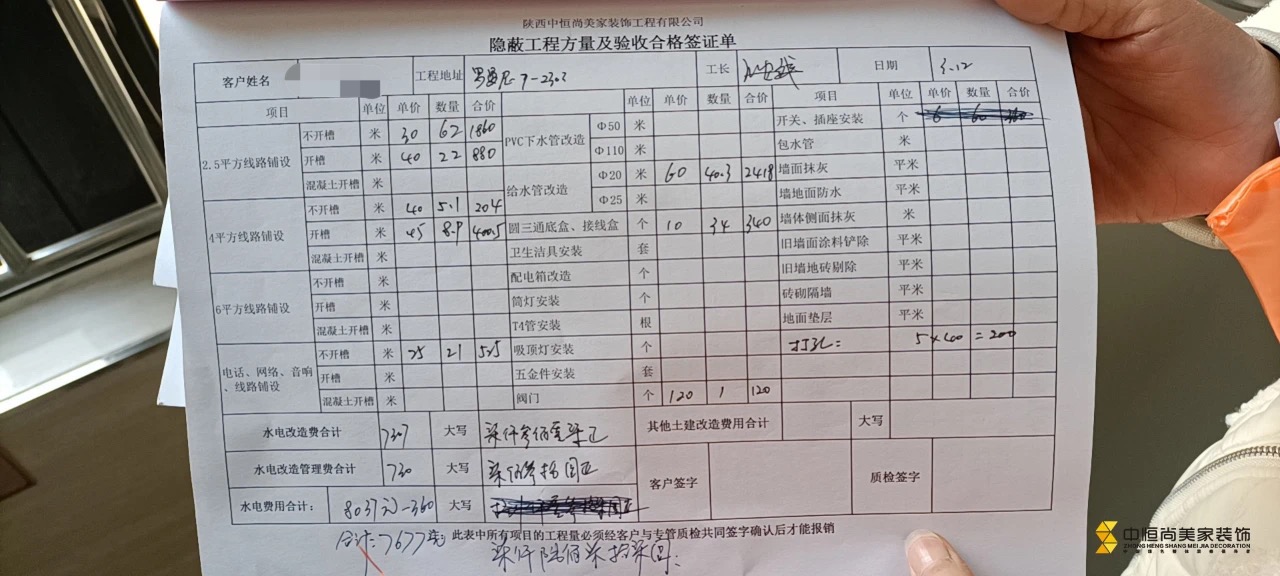 陕西中恒尚美家装饰工程有限公司
隐蔽工程方量及验收合格签证单
客户姓名 工程地址 7-2303 工长 日期 3.12
项目 单位 单价 数量 合价 单位 单价 数量 合价 项目 单位 单价 数量 合价
2.5平方线路铺设 不开槽 米 30 62 1860 PVC下水管改造 Φ50 米 开关、插座安装 个 6 60 360
开槽 米 40 22 880 Φ110 米 包水管 米
混凝土开槽 米 给水管改造 Φ20 米 60 40.3 2418 墙面抹灰 平米
4平方线路铺设 不开槽 米 40 5.1 204 Φ25 米 墙地面防水 平米
开槽 米 45 8.9 400.5 圆三通底盒、接线盒 个 10 34 340 墙体侧面抹灰 米
混凝土开槽 米 卫生洁具安装 套 旧墙面涂料铲除 平米
6平方线路铺设 不开槽 米 配电箱改造 个 旧墙地砖剔除 平米
开槽 米 筒灯安装 个 砖砌隔墙 平米
混凝土开槽 米 T4管安装 根 地面垫层 平米
电话、网络、音响、线路铺设 不开槽 米 25 21 525 吸顶灯安装 个 打孔: 5×40=200
开槽 米 五金件安装 套
混凝土开槽 米 阀门 个 120 1 120
水电改造费合计 7307 大写 柒仟叁佰零柒正 其他土建改造费用合计 大写
水电改造管理费合计 730 大写 柒佰叁拾圆正 客户签字 质检签字
水电费用合计: 8037元-360 大写
合计:7677 此表中所有项目的工程量必须经客户与专管质检共同签字确认后才能报销
柒仟陆佰柒拾柒圆
中恒尚美家装饰
ZHONG HENG SHANG MEI JIA DECORATION